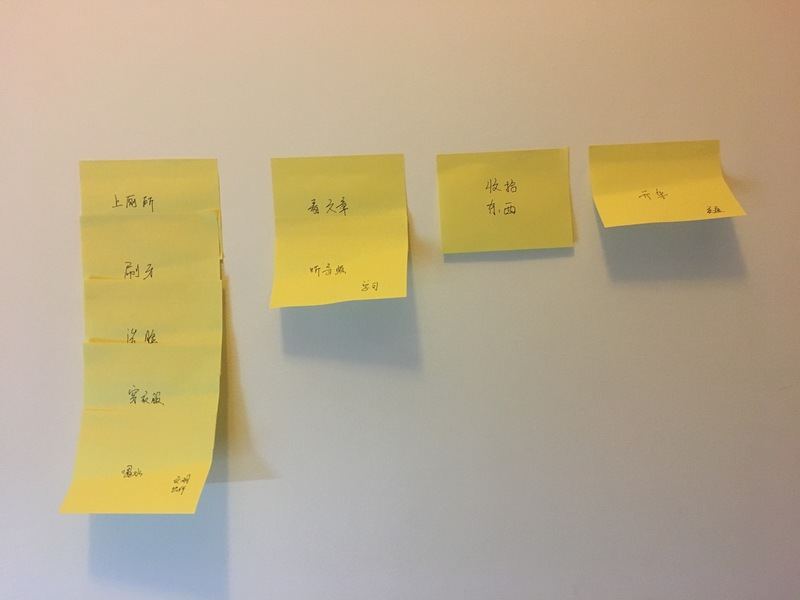 上厕所
刷牙
洗脸
穿衣服
喝水
看文章
听音频
学习
收拾
东西